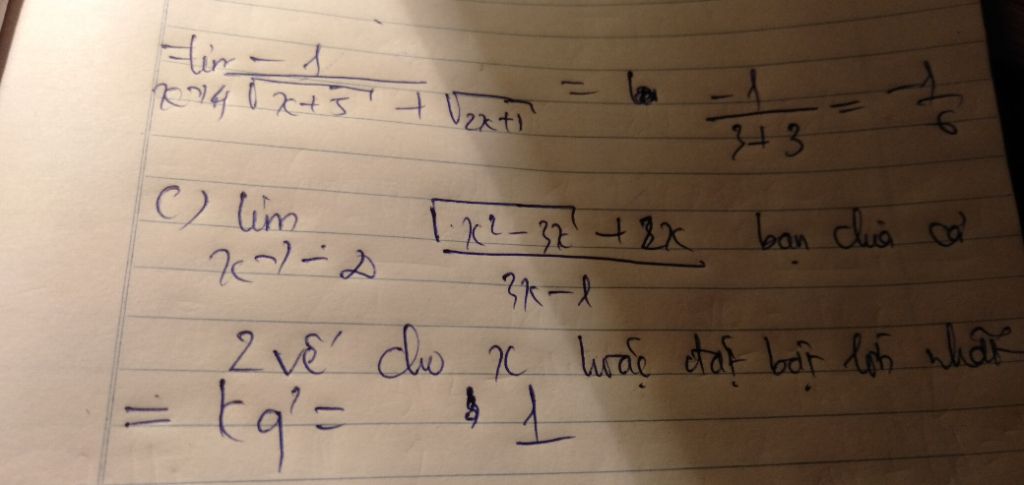 = lim -1 / (√(x+5) + √(2x+1)) = -1 / (3+3) = -1/6
x→4
C) lim (√(x²-3x) + 2x) / (3x-1) bạn chia cả
x→-∞
2 vế cho x hoặc đặt bậc lớn nhất
= kq' = 1